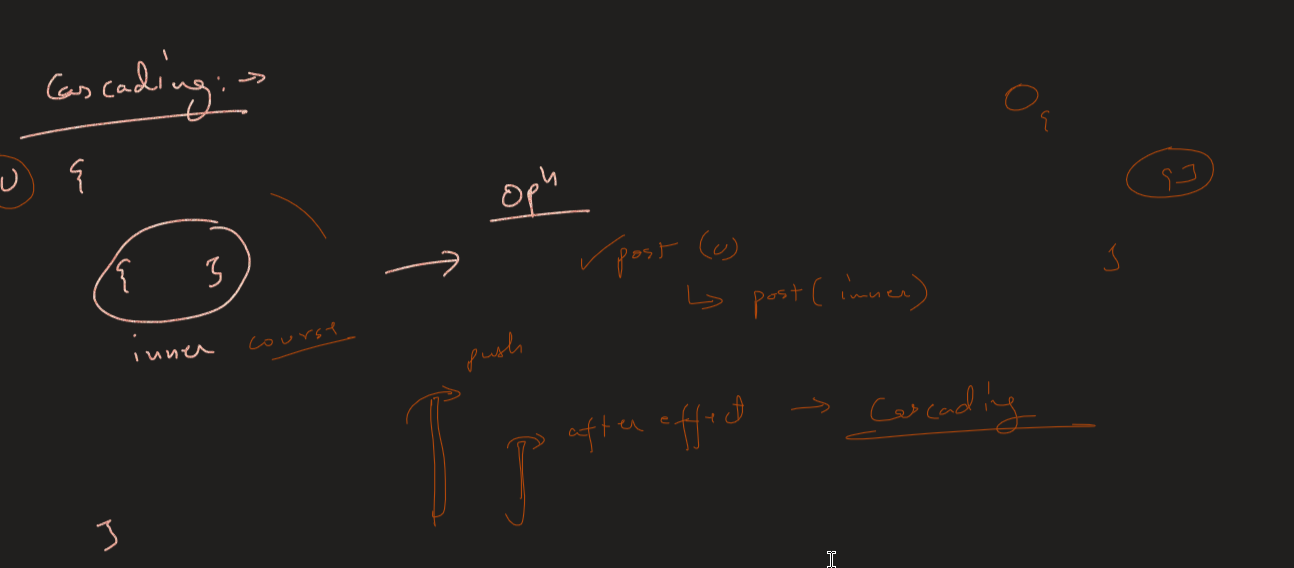 Cascading: →
U {
{ }
inner course
}
Opⁿ
✓ post (U)
↳ post( inner )
push
after effect → Cascading
O {
{ }
}